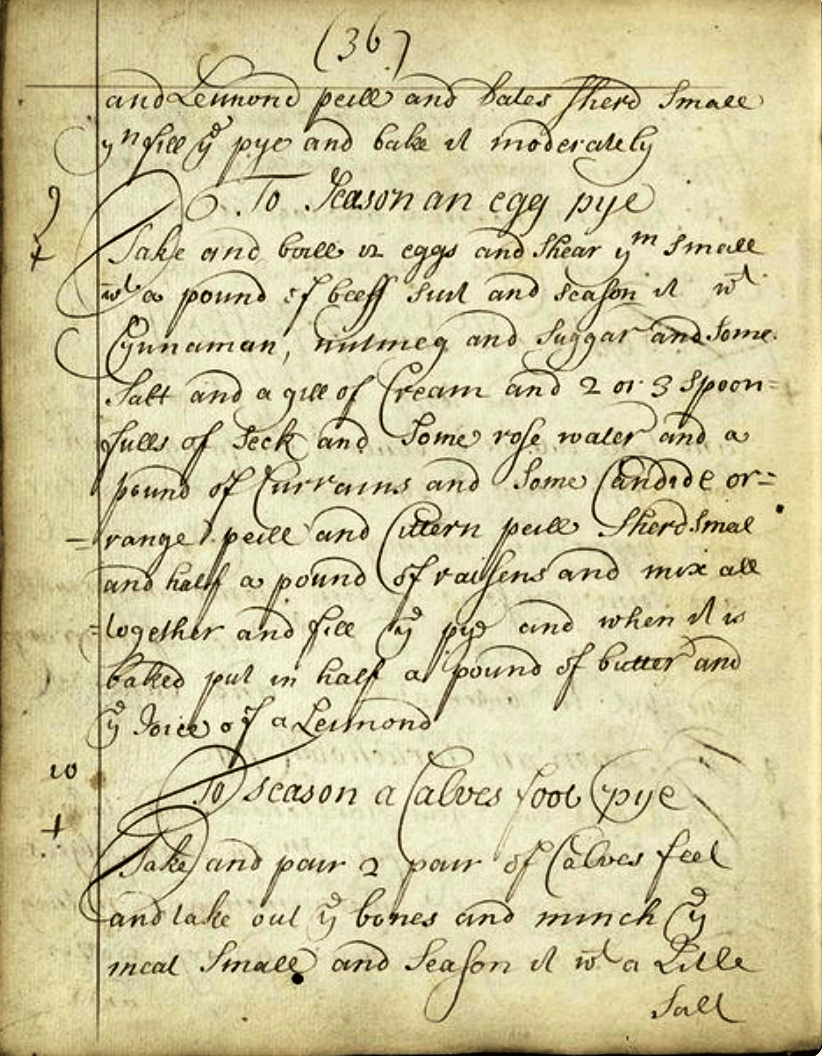 (36)
and Lemmond peill and Dates sherd Small
yn fill ye pye and bake it moderately
9 To Season an egg pye
+
Take and boill 12 eggs and Shear ym Small
wt a pound of beeff suit and season it wt
Cynnaman, nutmeg and Suggar and Some
Salt and a gill of Cream and 2 or 3 Spoon=
fulls of Seck and Some rose water and a
pound of Currains and Some Candide or=
=range peill and Cittern peill Sherd Smal
and half a pound of raissens and mix all
=together and fill ye pye and when it is
baked put in half a pound of butter and
ye Joice of a Lemmond
10 To season a Calves foot pye
+
Take and pair 2 pair of Calves feet
and take out ye bones and minch ye
meat Small and Season it wt a Litle
Salt